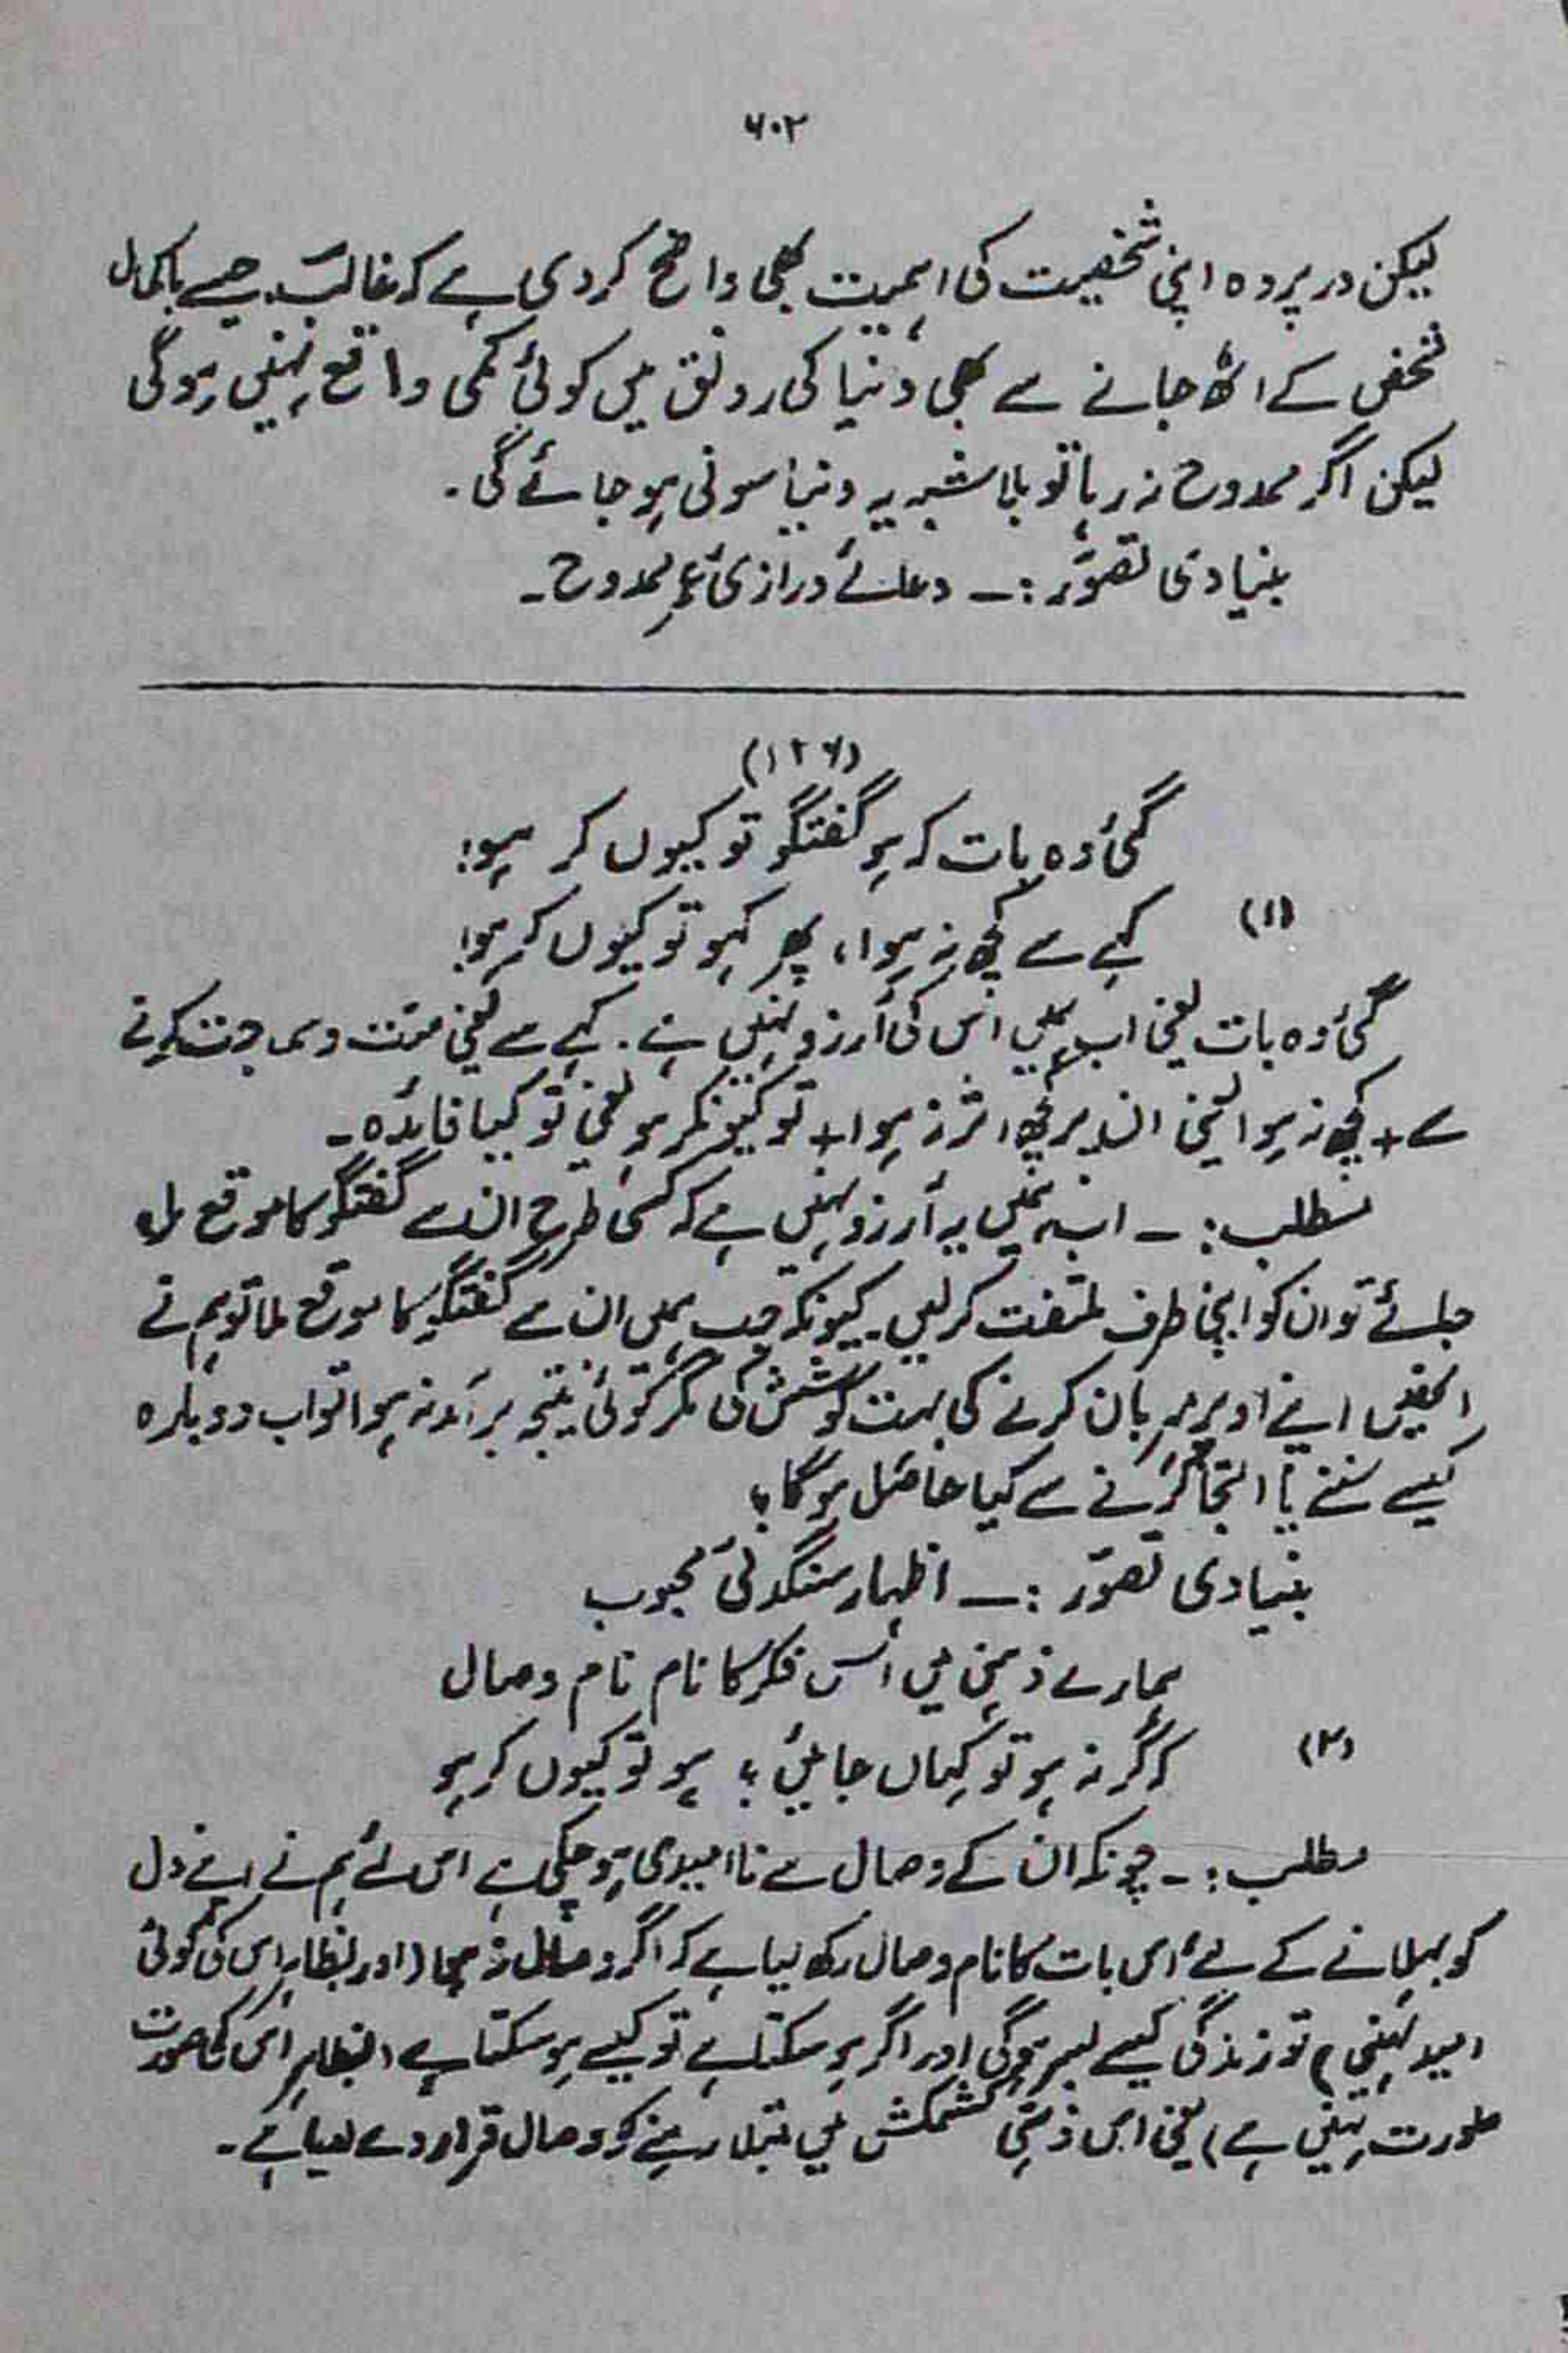 ۶۰۲
لیکن در پردہ اپنی شخصیت کی اہمیت بھی واضح کر دی ہے کہ غالبؔ جیسے باکمال
شخص کے اٹھ جانے سے بھی دُنیا کی رونق میں کوئی کمی واقع نہیں ہوگی
لیکن اگر ممدوح نہ رہا تو بلا شبہ یہ دنیا سونی ہو جائے گی۔
بنیادی تصوّر :۔ دعائے درازیٔ عمرِ ممدوح۔
(۱۲۶)
گئی وہ بات کہ ہو گفتگو تو کیوں کر ہو!
(۱) کہے سے کچھ نہ ہوا، پھر کہو تو کیوں کر ہو!
گئی وہ بات یعنی اب ہمیں اس کی آرزو نہیں ہے۔ کہے سے یعنی منّت و سماجت کرنے
سے + کچھ نہ ہوا یعنی ان پر کچھ اثر نہ ہوا + تو کیونکر ہو یعنی تو کیا فائدہ۔
مطلب :۔ اب ہمیں یہ آرزو نہیں ہے کہ کسی طرح ان سے گفتگو کا موقع مل
جائے تو ان کو اپنی طرف ملتفت کر لیں۔ کیونکہ جب ہمیں ان سے گفتگو کا موقع ملا تو ہم نے
انھیں اپنے اوپر مہربان کرنے کی بہت کوشش کی مگر کوئی نتیجہ برآمد نہ ہوا تو اب دوبارہ
کہنے سننے یا التجا کرنے سے کیا حاصل ہوگا؟
بنیادی تصوّر :۔ اظہار سنگدلیٔ محبوب
ہمارے ذہن میں اُس فکر کا نام نام وصال
(۲) کہ گر نہ ہو تو کہاں جائیں؟ ہو تو کیوں کر ہو
مطلب :۔ چونکہ ان کے وصال سے ناامیدی ہو چکی ہے اس لئے ہم نے اپنے دل
کو بہلانے کے لئے اس بات کا نام وصال رکھ لیا ہے کہ اگر وصال نہ ہوا (اور بظاہر اس کی کوئی
امید نہیں) تو زندگی کیسے بسر ہوگی اور اگر ہو سکتا ہے تو کیسے ہو سکتا ہے (بظاہر اس کی صورت
صورت نہیں ہے) یعنی اس ذہنی کشمکش میں مبتلا رہنے کو وصال قرار دے لیا ہے۔